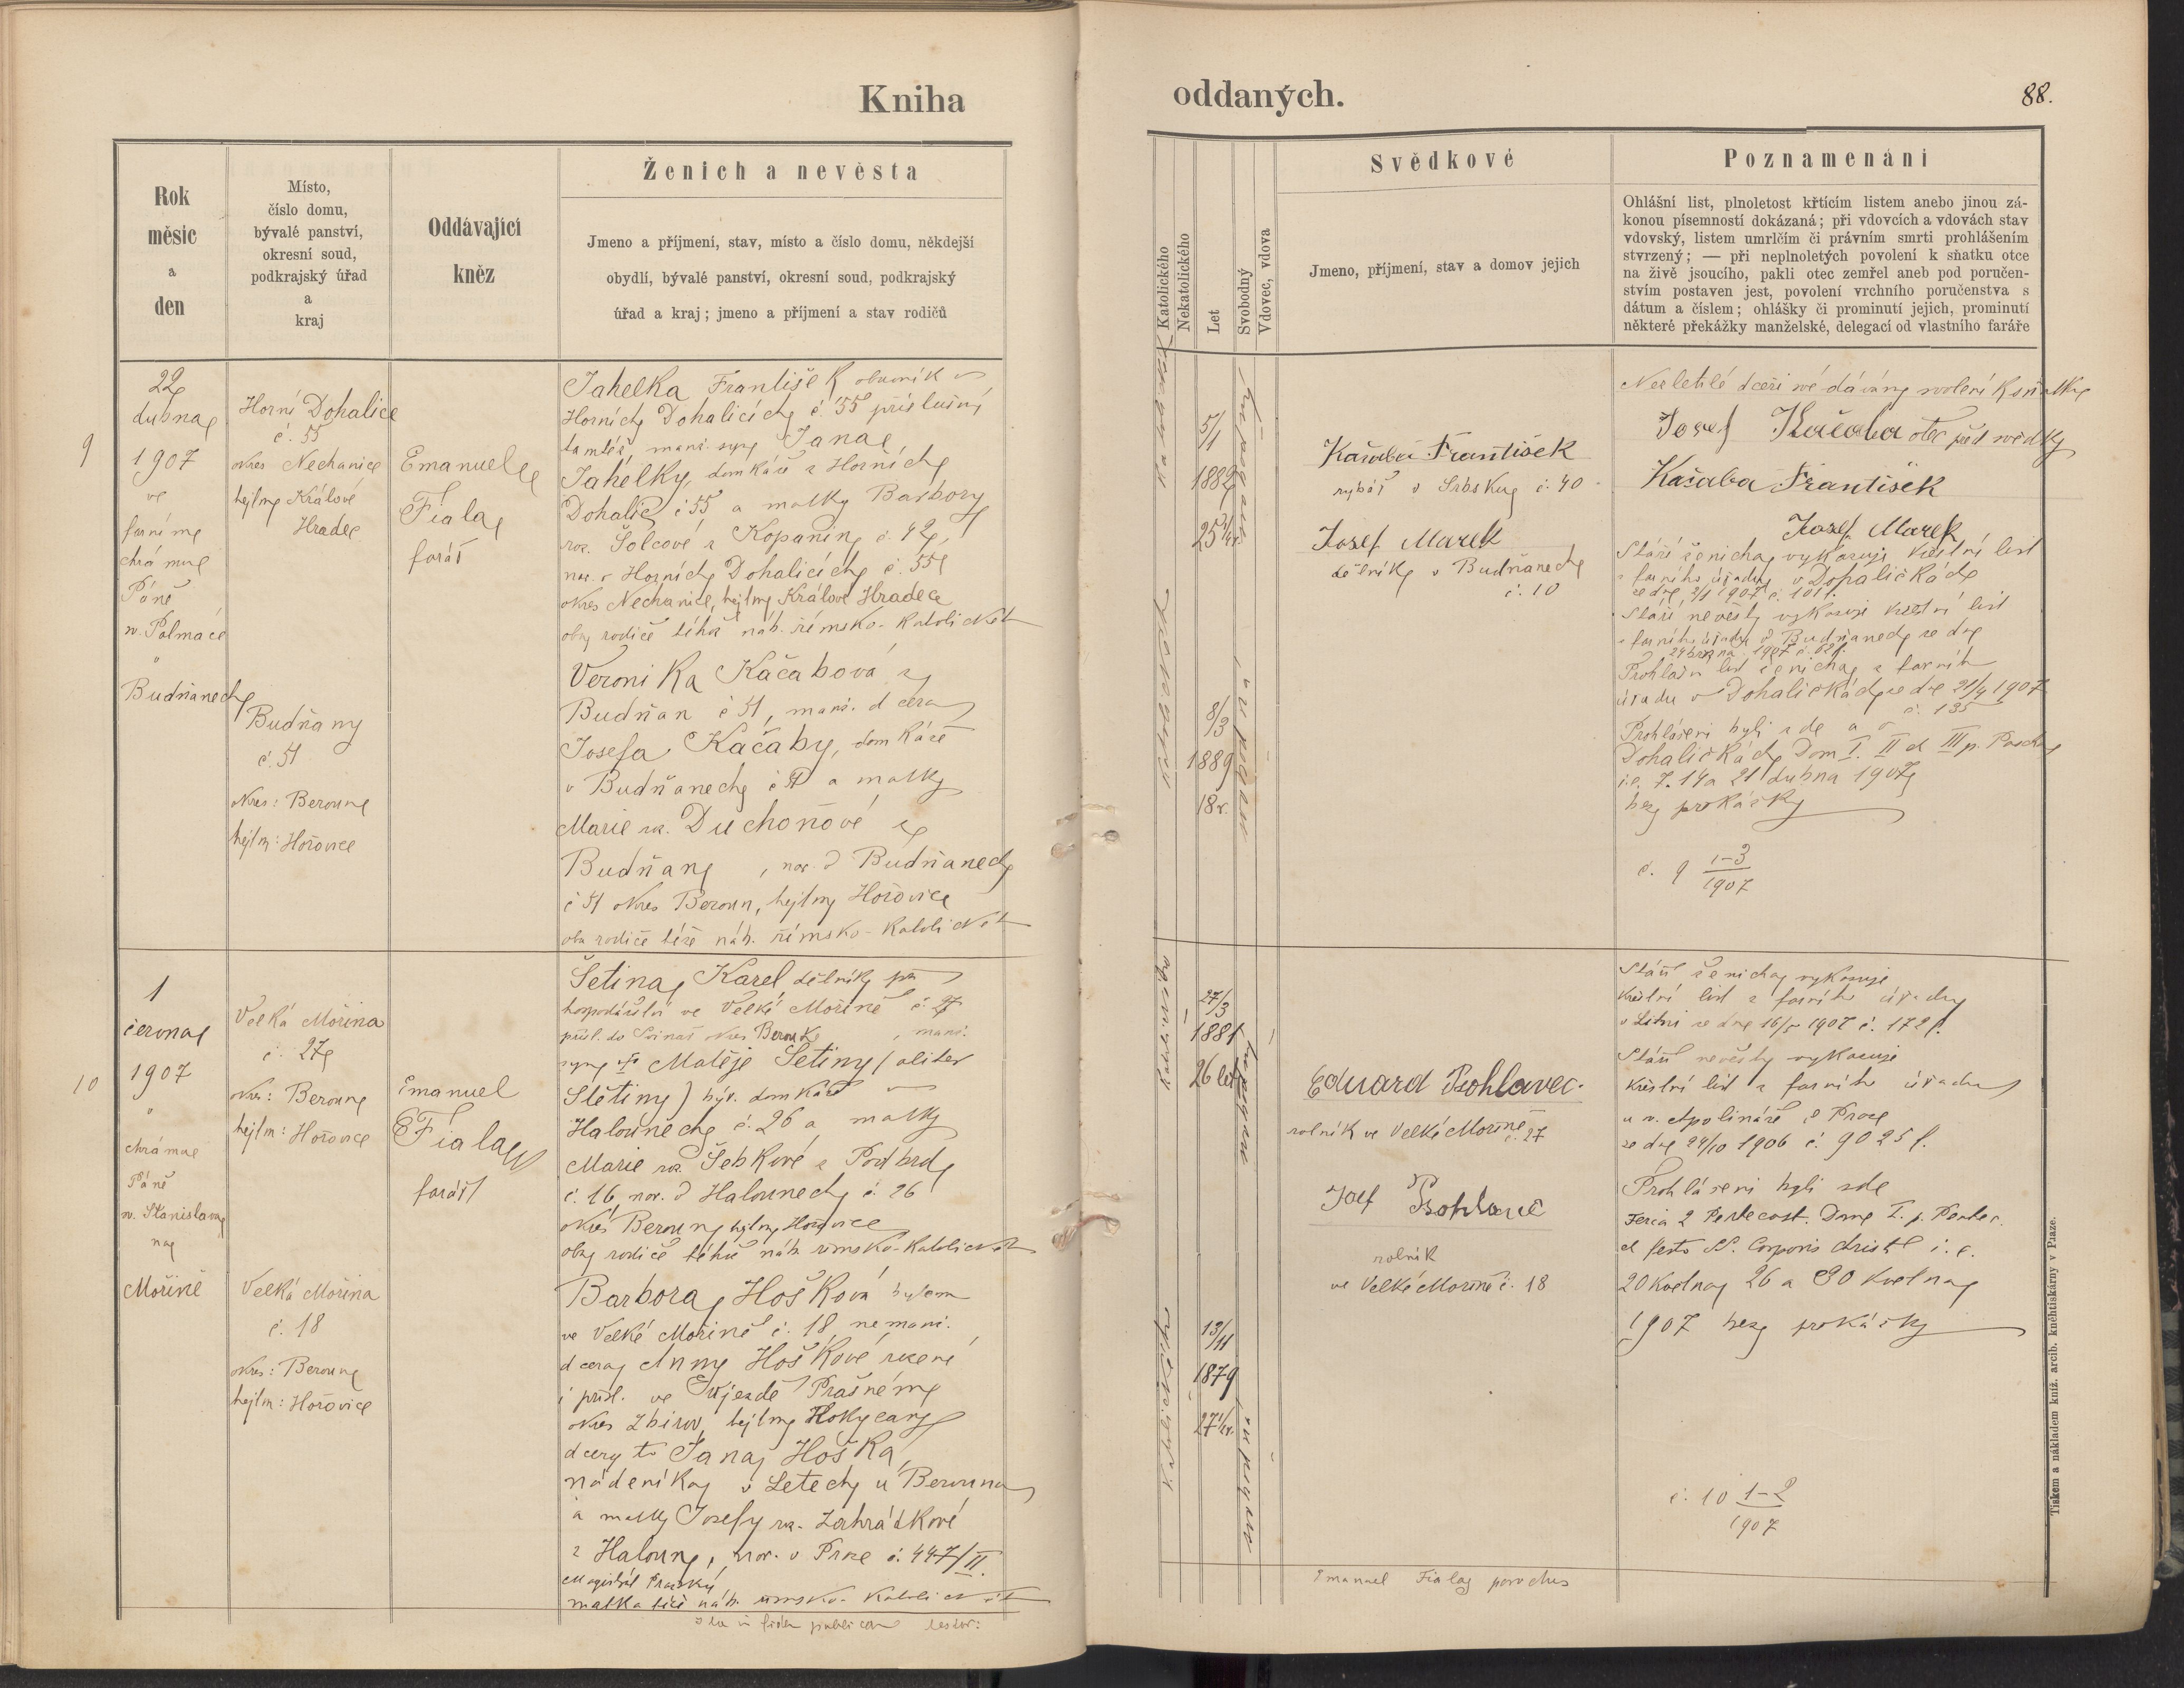 Kniha
oddaných.
88.
Rok
měsíc
a
den
Místo,
číslo domu,
bývalé panství,
okresní soud,
podkrajský úřad
a
kraj
Oddávající
kněz
Ženich a nevěsta
Jmeno a příjmení, stav, místo a číslo domu, někdejší
obydlí, bývalé panství, okresní soud, podkrajský
úřad a kraj; jmeno a příjmení a stav rodičů
Katolického
Nekatolického
Let
Svobodný
Vdovec, vdova
Svědkové
Jmeno, příjmení, stav a domov jejich
Poznamenání
Ohlášní list, plnoletost křtícím listem anebo jinou zá-
konou písemností dokázaná; při vdovcích a vdovách stav
vdovský, listem umrlčím či právním smrti prohlášením
stvrzený; — při neplnoletých povolení k sňatku otce
na živě jsoucího, pakli otec zemřel aneb pod poručen-
stvím postaven jest, povolení vrchního poručenstva s
dátum a číslem; ohlášky či prominutí jejich, prominutí
některé překážky manželské, delegací od vlastního faráře
9
22
dubna
1907
ve
farním
chrámu
Páně
sv. Palmacie
v
Budňanech
Horní Dohalice
č. 55
okres Nechanice
hejtm Králové
Hradec
Budňany
č. 51
okres: Beroun
hejtm: Hořovice
Emanuel
Fiala
farář
Jahelka František obuvník v
Horních Dohalicích č. 55 příslušný
tamtéž, manž. syn Jana
Jahelky, domkáře z Horních
Dohalic č 55 a matky Barbory
roz. Šolcové z Kopanin č. 42,
nar. v Horních Dohalicích č. 55
okres Nechanice, hejtm Králové Hradec
oba rodiče téhož náb. římsko-katolického
Veronika Kačabová z
Budňan č 51, manž. dcera
Josefa Kačaby, domkáře
v Budňanech č 51 a matky
Marie roz. Duchoňové z
Budňan, nar. v Budňanech
č 51 okres Beroun, hejtm Hořovice
oba rodiče téže náb. římsko-katolického
5/1
1882
25 1/4 r.
8/3
1889
18 r.
Kačaba František
rybář v Srbsku č. 40
Josef Marek
dělník v Budňanech
č. 10
Nezletilé dceři své dávám svolení k sňatku
Josef Kačaba otec před svědky
Kačaba František
Josef Marek
Stáří ženicha vykazuje křestní list
z farního úřadu v Dohaličkách
Stáří nevěsty vykazuje křestní list
z farního úřadu v Budňanech ze dne
24 března 1907 č. 62 f.
Prohlašní list ženicha z farního
úřadu v Dohaličkách ze dne 21/4 1907
č. 135
Prohlášeni byli zde a v
Dohaličkách Dom I. II et III p. Pascha
i.e. 7. 14 a 21 dubna 1907
bez překážky
č. 9 1-3
1907
10
1
června
1907
v
chrámu
Páně
sv. Stanislava
na
Mořině
Velká Mořina
č. 27
okr: Beroun
hejtm: Hořovice
Velká Mořina
č. 18
okres: Beroun
hejtm: Hořovice
Emanuel
Fiala
farář
Šetina Karel dělník při
hospodářství ve Velké Mořině č. 27
přísl. do Svinař okres Beroun, manž.
syn Matěje Šetiny (aliter
Štětiny) býv. domkáře v
Halounech č. 26 a matky
Marie roz. Šebkové z Podbrd
č. 16, nar. v Halounech č. 26
okres Beroun hejtm Hořovice
oba rodiče téhož náb. římsko-katolického
Barbora Hošková bytem
ve Velké Mořině č. 18, nemanž.
dcera Anny Hoškové
i přísl. ve Újezdě Prašném
okres Zbirov, hejtm Rokycany
dcery Jana Hoška,
nádeníka v Letech u Berouna
a matky Josefy roz. Zahrádkové
z Haloun, nar. v Praze č. 447/II.
Magistrát Pražský
matka téže náb. římsko-katolického
27/3
1881
26 let
13/11
1879
27 1/2 r.
Eduard Psohlavec
rolník ve Velké Mořině č. 27
Josef Psohlavec
rolník
ve Velké Mořině č. 18
Stáří ženicha vykazuje
křestní list z farního úřadu
v Litni ze dne 16/5 1907 č. 172 f.
Stáří nevěsty vykazuje
křestní list z farního úřadu
u sv. Apolináře v Praze
ze dne 24/10 1906 č. 9025 f.
Prohlášeni byli zde
Feria 2 Pentecost. Dom I. p. Pentec.
et festo SS. Corporis Christi i. e.
20 května 26 a 30 května
1907 bez překážky
č. 10 1-2
1907
Ita in fidem publicam testor:
Emanuel Fiala parochus
Tiskem a nákladem kníž. arcib. knehtiskárny v Praze.